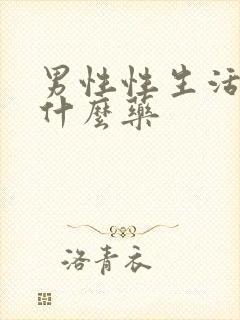 男性性生活
什麼藥
洛青衣